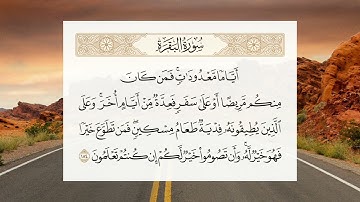 سُورَةُ البَقَرَةِ
أَيَّامًا مَّعْدُودَاتٍ ۚ فَمَن كَانَ
مِنكُم مَّرِيضًا أَوْ عَلَىٰ سَفَرٍ فَعِدَّةٌ مِّنْ أَيَّامٍ أُخَرَ ۚ وَعَلَى
الَّذِينَ يُطِيقُونَهُ فِدْيَةٌ طَعَامُ مِسْكِينٍ ۖ فَمَن تَطَوَّعَ خَيْرًا
فَهُوَ خَيْرٌ لَّهُ ۚ وَأَن تَصُومُوا خَيْرٌ لَّكُمْ ۖ إِن كُنتُمْ تَعْلَمُونَ ١٨٤